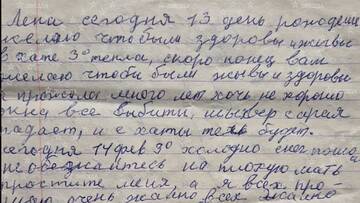 Лена сегодня 13 день рождения
желаю чтобы были здоровы и живы
в хате 3° тепла, скоро конец вам
желаю чтоби были живы и здоровы
и прожили много лет хочь не хорошо
все выбити, шыхвер сарая
падает, и с хаты тожь будет.
сегодня 14 фев 3° холодно снег пошел
на плохую мать
простите меня, а я всех про-
очень жално всех жално